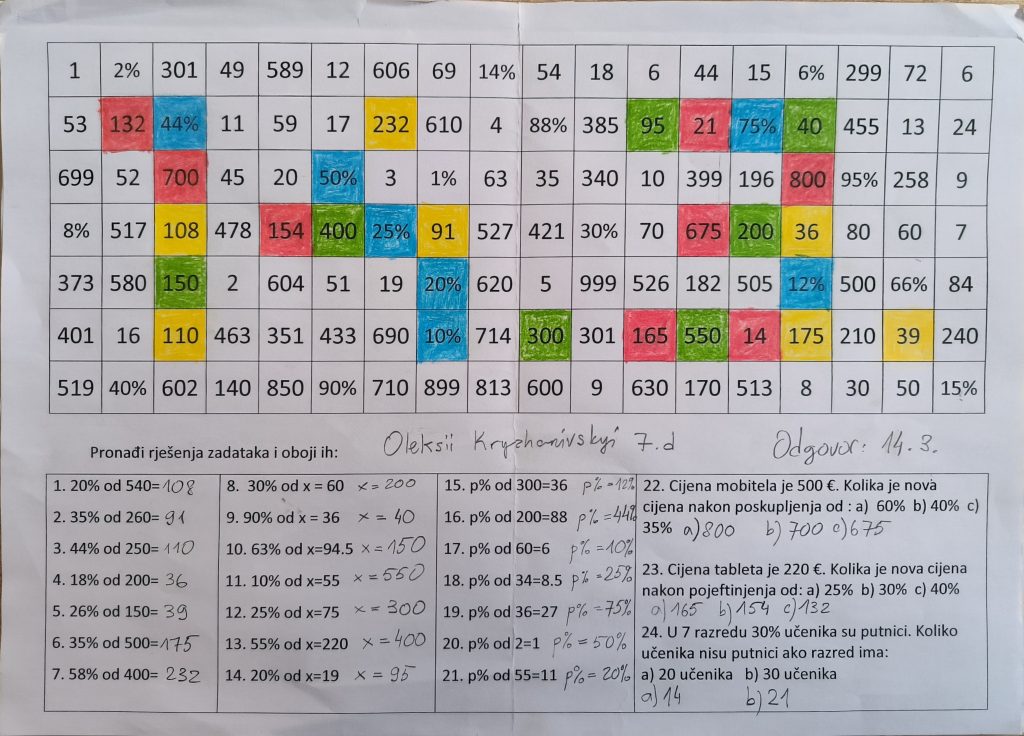 1 2% 301 49 589 12 606 69 14% 54 18 6 44 15 6% 299 72 6
53 132 44% 11 59 17 232 610 4 88% 385 95 21 75% 40 455 13 24
699 52 700 45 20 50% 3 1% 63 35 340 10 399 196 800 95% 258 9
8% 517 108 478 154 400 25% 91 527 421 30% 70 675 200 36 80 60 7
373 580 150 2 604 51 19 20% 620 5 999 526 182 505 12% 500 66% 84
401 16 110 463 351 433 690 10% 714 300 301 165 550 14 175 210 39 240
519 40% 602 140 850 90% 710 899 813 600 9 630 170 513 8 30 50 15%
Pronađi rješenja zadataka i oboji ih: Oleksii Kryzhanivskyi 7.d Odgovor: 14.3.
1. 20% od 540= 108
2. 35% od 260= 91
3. 44% od 250= 110
4. 18% od 200= 36
5. 26% od 150= 39
6. 35% od 500= 175
7. 58% od 400= 232
8. 30% od x = 60 x = 200
9. 90% od x = 36 x = 40
10. 63% od x=94.5 x = 150
11. 10% od x=55 x = 550
12. 25% od x=75 x = 300
13. 55% od x=220 x = 400
14. 20% od x=19 x = 95
15. p% od 300=36 p% = 12%
16. p% od 200=88 p% = 44%
17. p% od 60=6 p% = 10%
18. p% od 34=8.5 p% = 25%
19. p% od 36=27 p% = 75%
20. p% od 2=1 p% = 50%
21. p% od 55=11 p% = 20%
22. Cijena mobitela je 500 €. Kolika je nova
cijena nakon poskupljenja od : a) 60% b) 40% c)
35% a) 800 b) 700 c) 675
23. Cijena tableta je 220 €. Kolika je nova cijena
nakon pojeftinjenja od: a) 25% b) 30% c) 40%
a) 165 b) 154 c) 132
24. U 7 razredu 30% učenika su putnici. Koliko
učenika nisu putnici ako razred ima:
a) 20 učenika b) 30 učenika
a) 14 b) 21